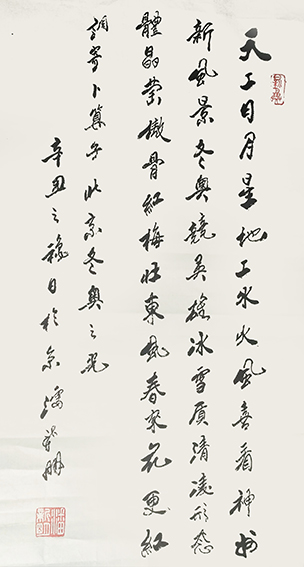 天上日月星地上水火風喜看神州
新風景冬奧競英雄冰雪質清凌形态
體晶莹傲骨紅梅旺東風春來花更紅
調寄卜算子北京冬奧之光
辛丑之日於京潘鵬